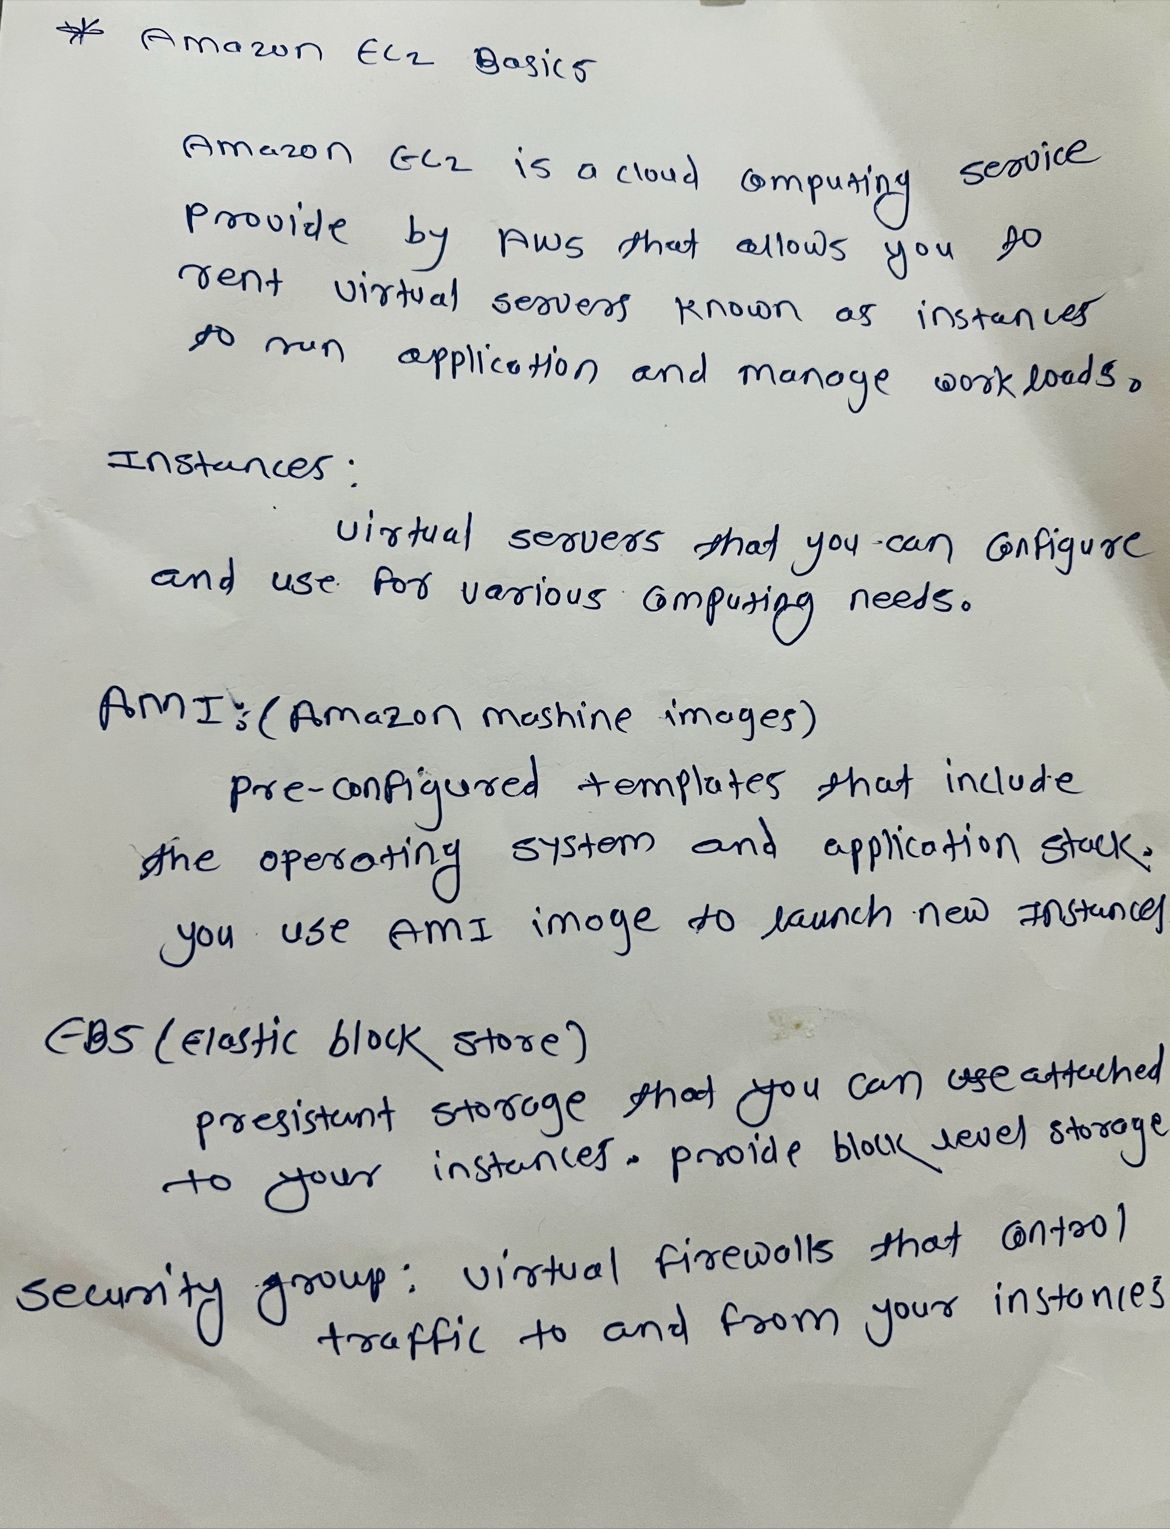 * Amazon EC2 Basics
Amazon EC2 is a cloud computing service
provide by AWS that allows you to
rent virtual servers known as instances
to run application and manage workloads.
Instances:
virtual servers that you can configure
and use for various computing needs.
AMI:(Amazon mashine images)
pre-configured templates that include
the operating system and application stack.
you use AMI image to launch new Instances
EBS (Elastic block store)
presistant storage that you can use attached
to your instances. proide block level storage
security group: virtual firewalls that control
traffic to and from your instances